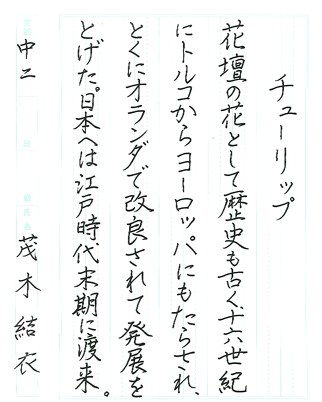 チューリップ
花壇の花として歴史も古く、十六世紀
にトルコからヨーロッパにもたらされ、
とくにオランダで改良されて発展を
とげた。日本へは江戸時代末期に渡来。
中二 茂木結衣